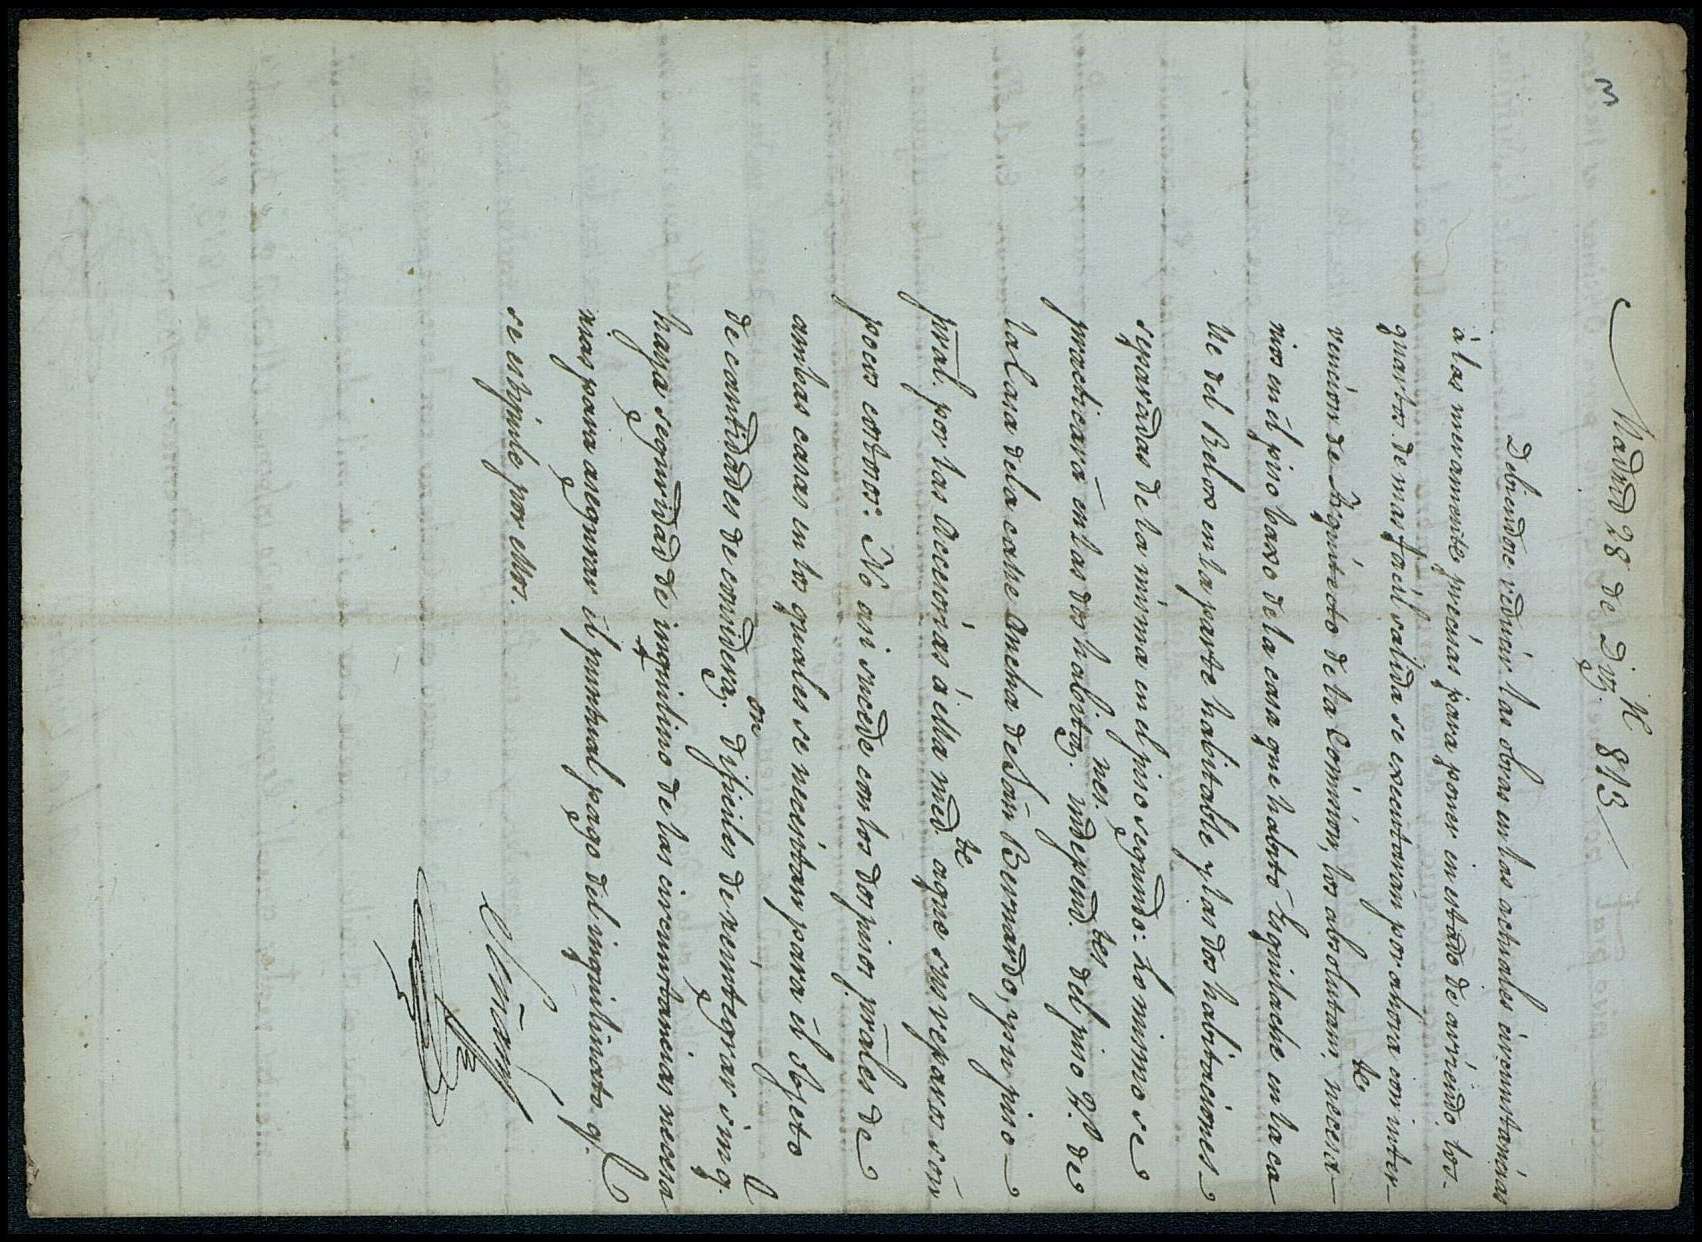 3
Madrid 28 de Diz.e 813
Debiendose reducir las obras en las actuales circunstancias
á las meramente precisas para poner en estado de arriendo los
quartos de mas facil salida se executarán por ahora con inter-
vencion de Arquitecto de la Comision, los absolutam.te necesa-
rios en él piso baxo de la casa que habitó Esquilache en la ca
lle del Relox en la parte habitable y las dos habitaciones
separadas de la misma en el piso segundo: lo mismo se
practicará en las dos habitaz.nes independ.tes del piso 2.º de
la Casa dela calle Ancha de San Bernardo, y su piso
pral. por las Accesorias á ella med.te aque sus reparos son
pocos costosos: No asi sucede con los dos pisos prales de
ambas casas en los quales se necesitan para él Objeto
de cantidades de consideraz.on dificiles de reintegrar sin q.e
haya seguridad de inquilino de las circunstancias necesa
rias para asegurar él puntual pago del inquilinato q.e
se estipule por ellos.